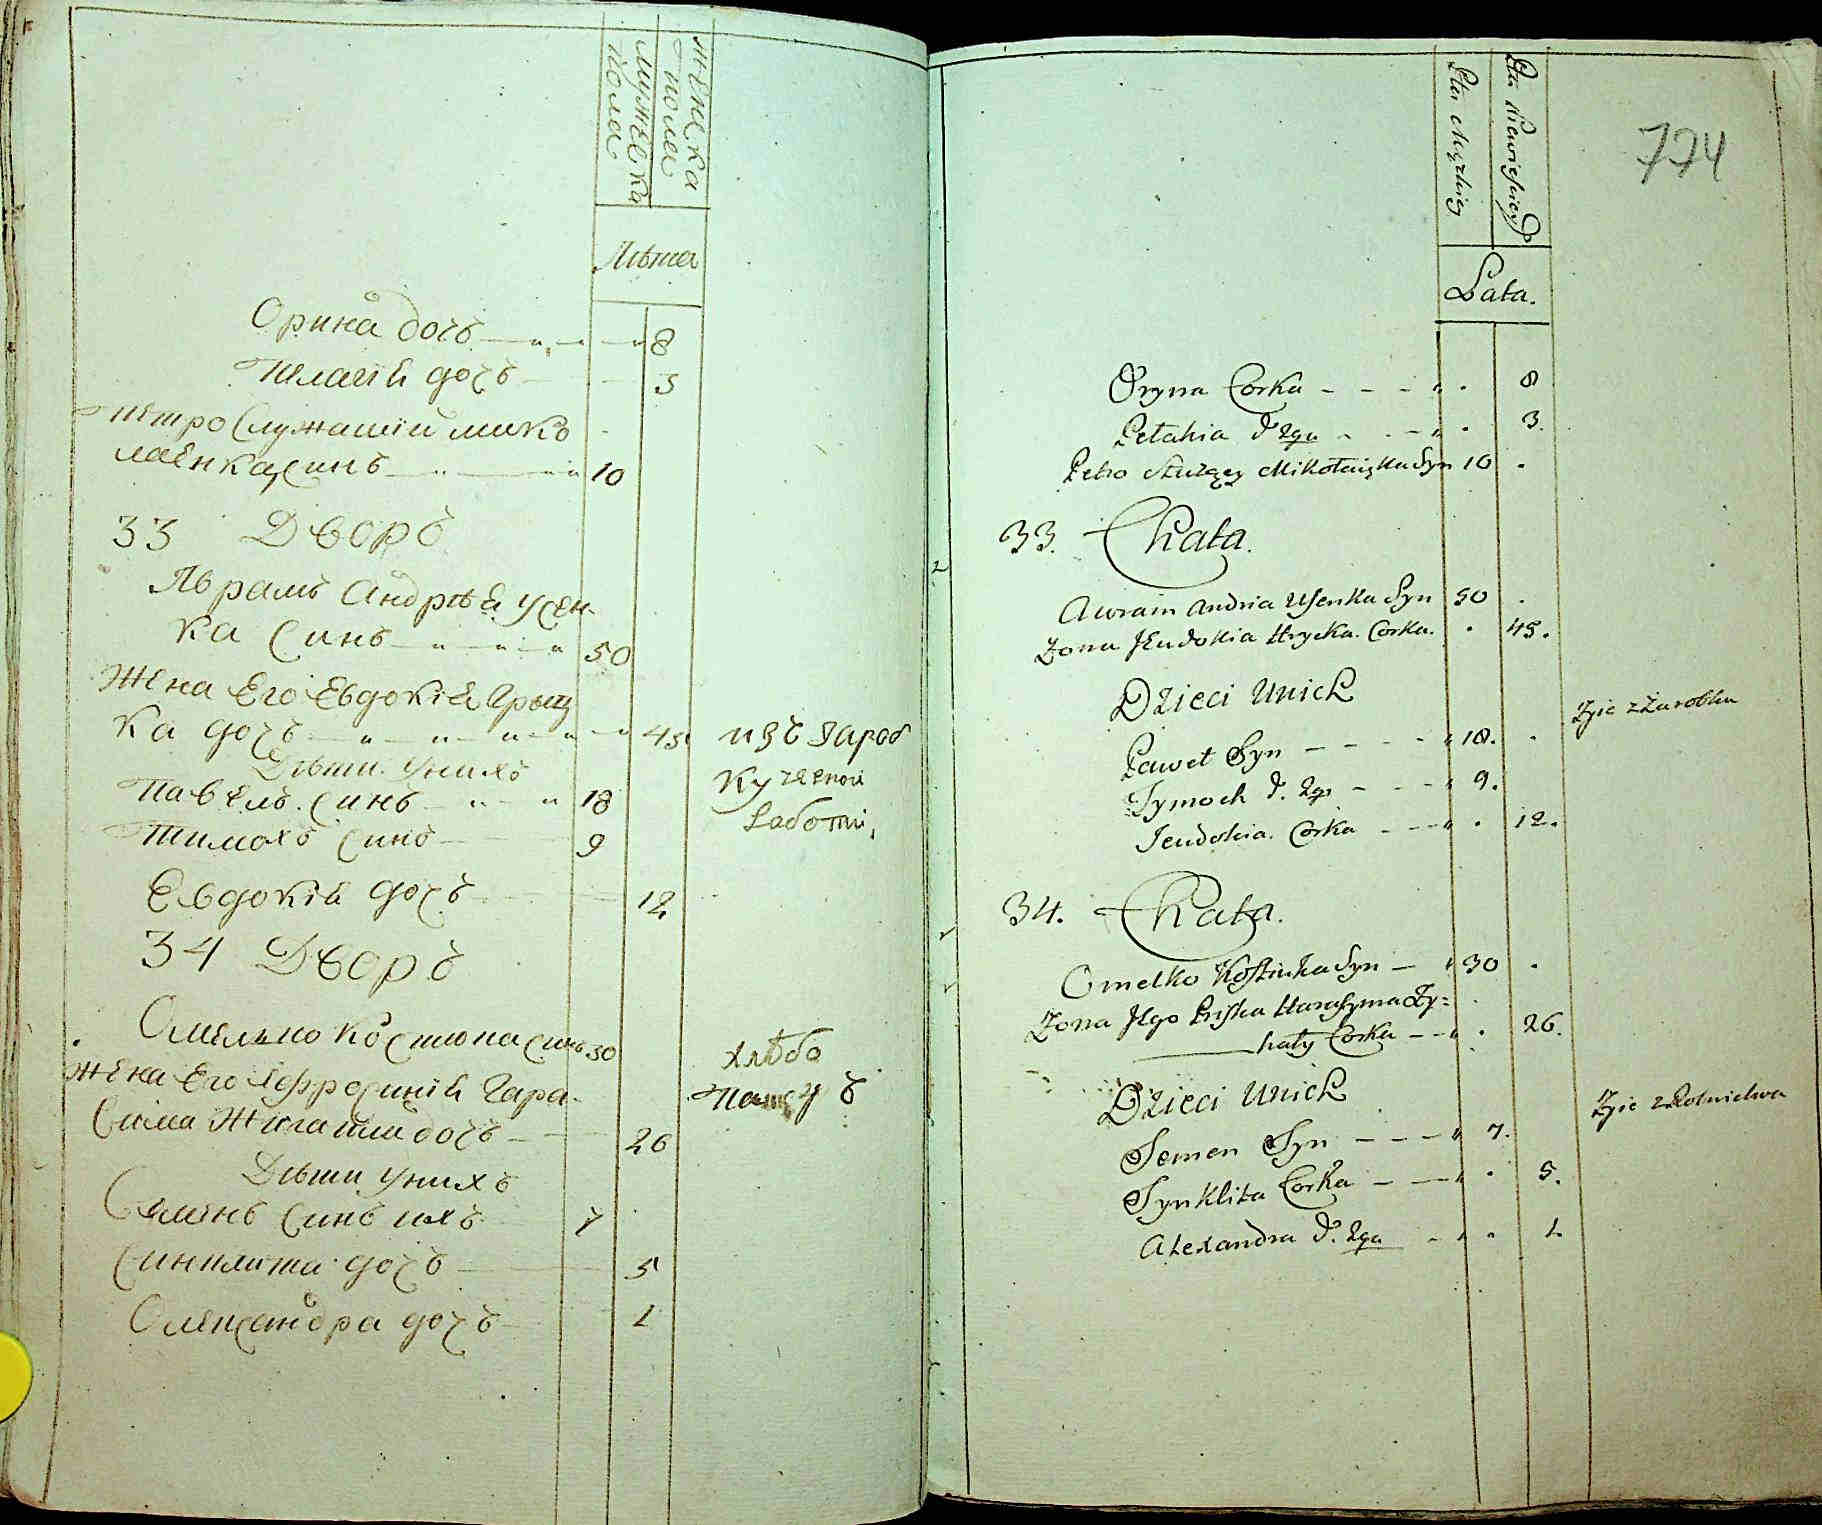 мужеска
пола
женска
пола
Лѣта
Орина дочъ 8
Пелагія дочъ 3
Петро Служащій Мико
лаенка синъ 10
33 Дворъ
Аврамъ Андрѣя Усен-
ка синъ 50
Жена Его Евдокія Грыц
ка дочъ 45
Дѣти Унихъ
Павелъ синъ 18
Тимохъ синъ 9
Евдокія дочъ 12
изъ зароб
ку
работи
34 Дворъ
Омелько Костюка синъ 30
жена Его Ефросинія Гара-
сима дочъ 26
Дѣти Унихъ
Семенъ синъ ихъ 7
Синклита дочъ 5
Олександра дочъ 1
хлѣбо
774
Płci Męzkiey
Płci Niewieściey
Lata.
Oryna Corka 8
Pelahia d. 2ga 3.
Petro Służący Mikołaizka Syn 10
33. Chata.
Awram Andria Usenka Syn 50
Zona Jeudokia Hrycka Corka. 45.
Dzieci Unich
Paweł Syn 18.
Tymoch d. 2gi 9.
Jeudokia. Corka 12.
Zyie z Zarobku
34. Chata.
Omelko Kostiuka Syn 30
Zona Jego Priska Harasyma Zy=
hały Corka 26.
Dzieci Unich
Semen Syn 7.
Synklita Corka 5.
Alexandra d. 2ga 1.
Zyie z Rolnictwa